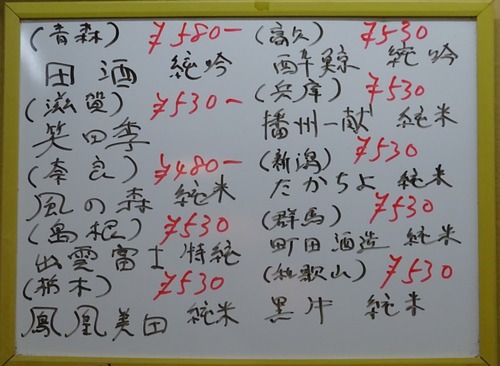 (青森) ¥580-
田酒 純吟
(滋賀) ¥530-
笑四季
(奈良) ¥480-
風の森 純米
(島根) ¥530
出雲富士 特純
(栃木) ¥530
鳳凰美田 純米
(高知) ¥530
酔鯨 純吟
(兵庫) ¥530
播州一献 純米
(新潟) ¥530
たかちよ 純米
(群馬) ¥530
町田酒造 純米
(和歌山) ¥530
黒牛 純米